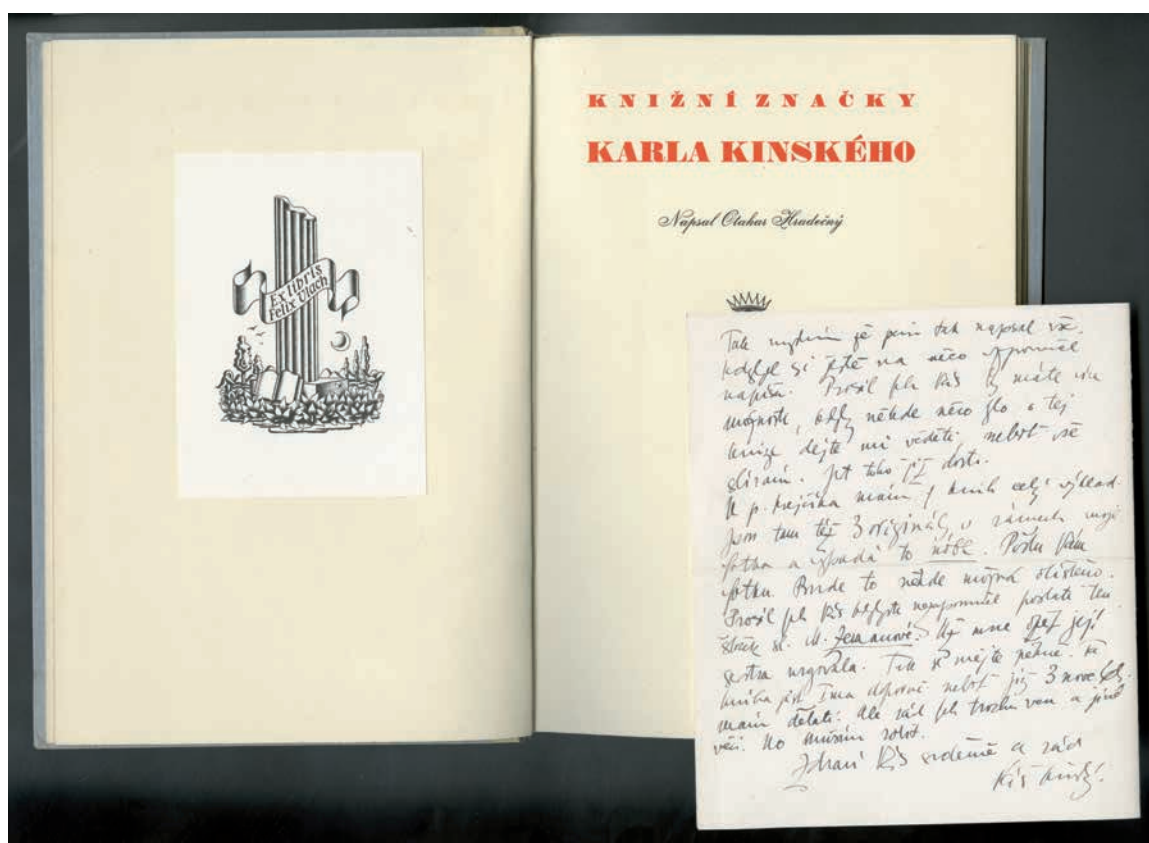 Ex libris
Felix Vlach
KNIŽNÍ ZNAČKY
KARLA KINSKÉHO
Napsal Otakar Hradečný
Tak myslím že jsem tak napsal vše.
si ještě na něco
napíšu. Prosil bch Vás by máte
možnost, kdyby někde něco šlo o tej
knize dejte mi věděti neboť vše
sbírám. Jest toho již dosti.
U p. mám knih celý výklad.
Jsou tam též 3 originály v rámech moje
fotka a vypadá to nóbl. Pošlu Vám
fotku. Bude to někde možná otištěno.
Prosil bch Vás nezapomněl poslati ten
sl. M. Zemanové. Už mne opět její
sestra urgovala. Tak se mějte pěkně.
kniha neboť již 3 nové
mám dělati. Ale rád bch trochu ven a jiné
věci. No musím robit.
Zdraví Vás srdečně a rád
Kinský.